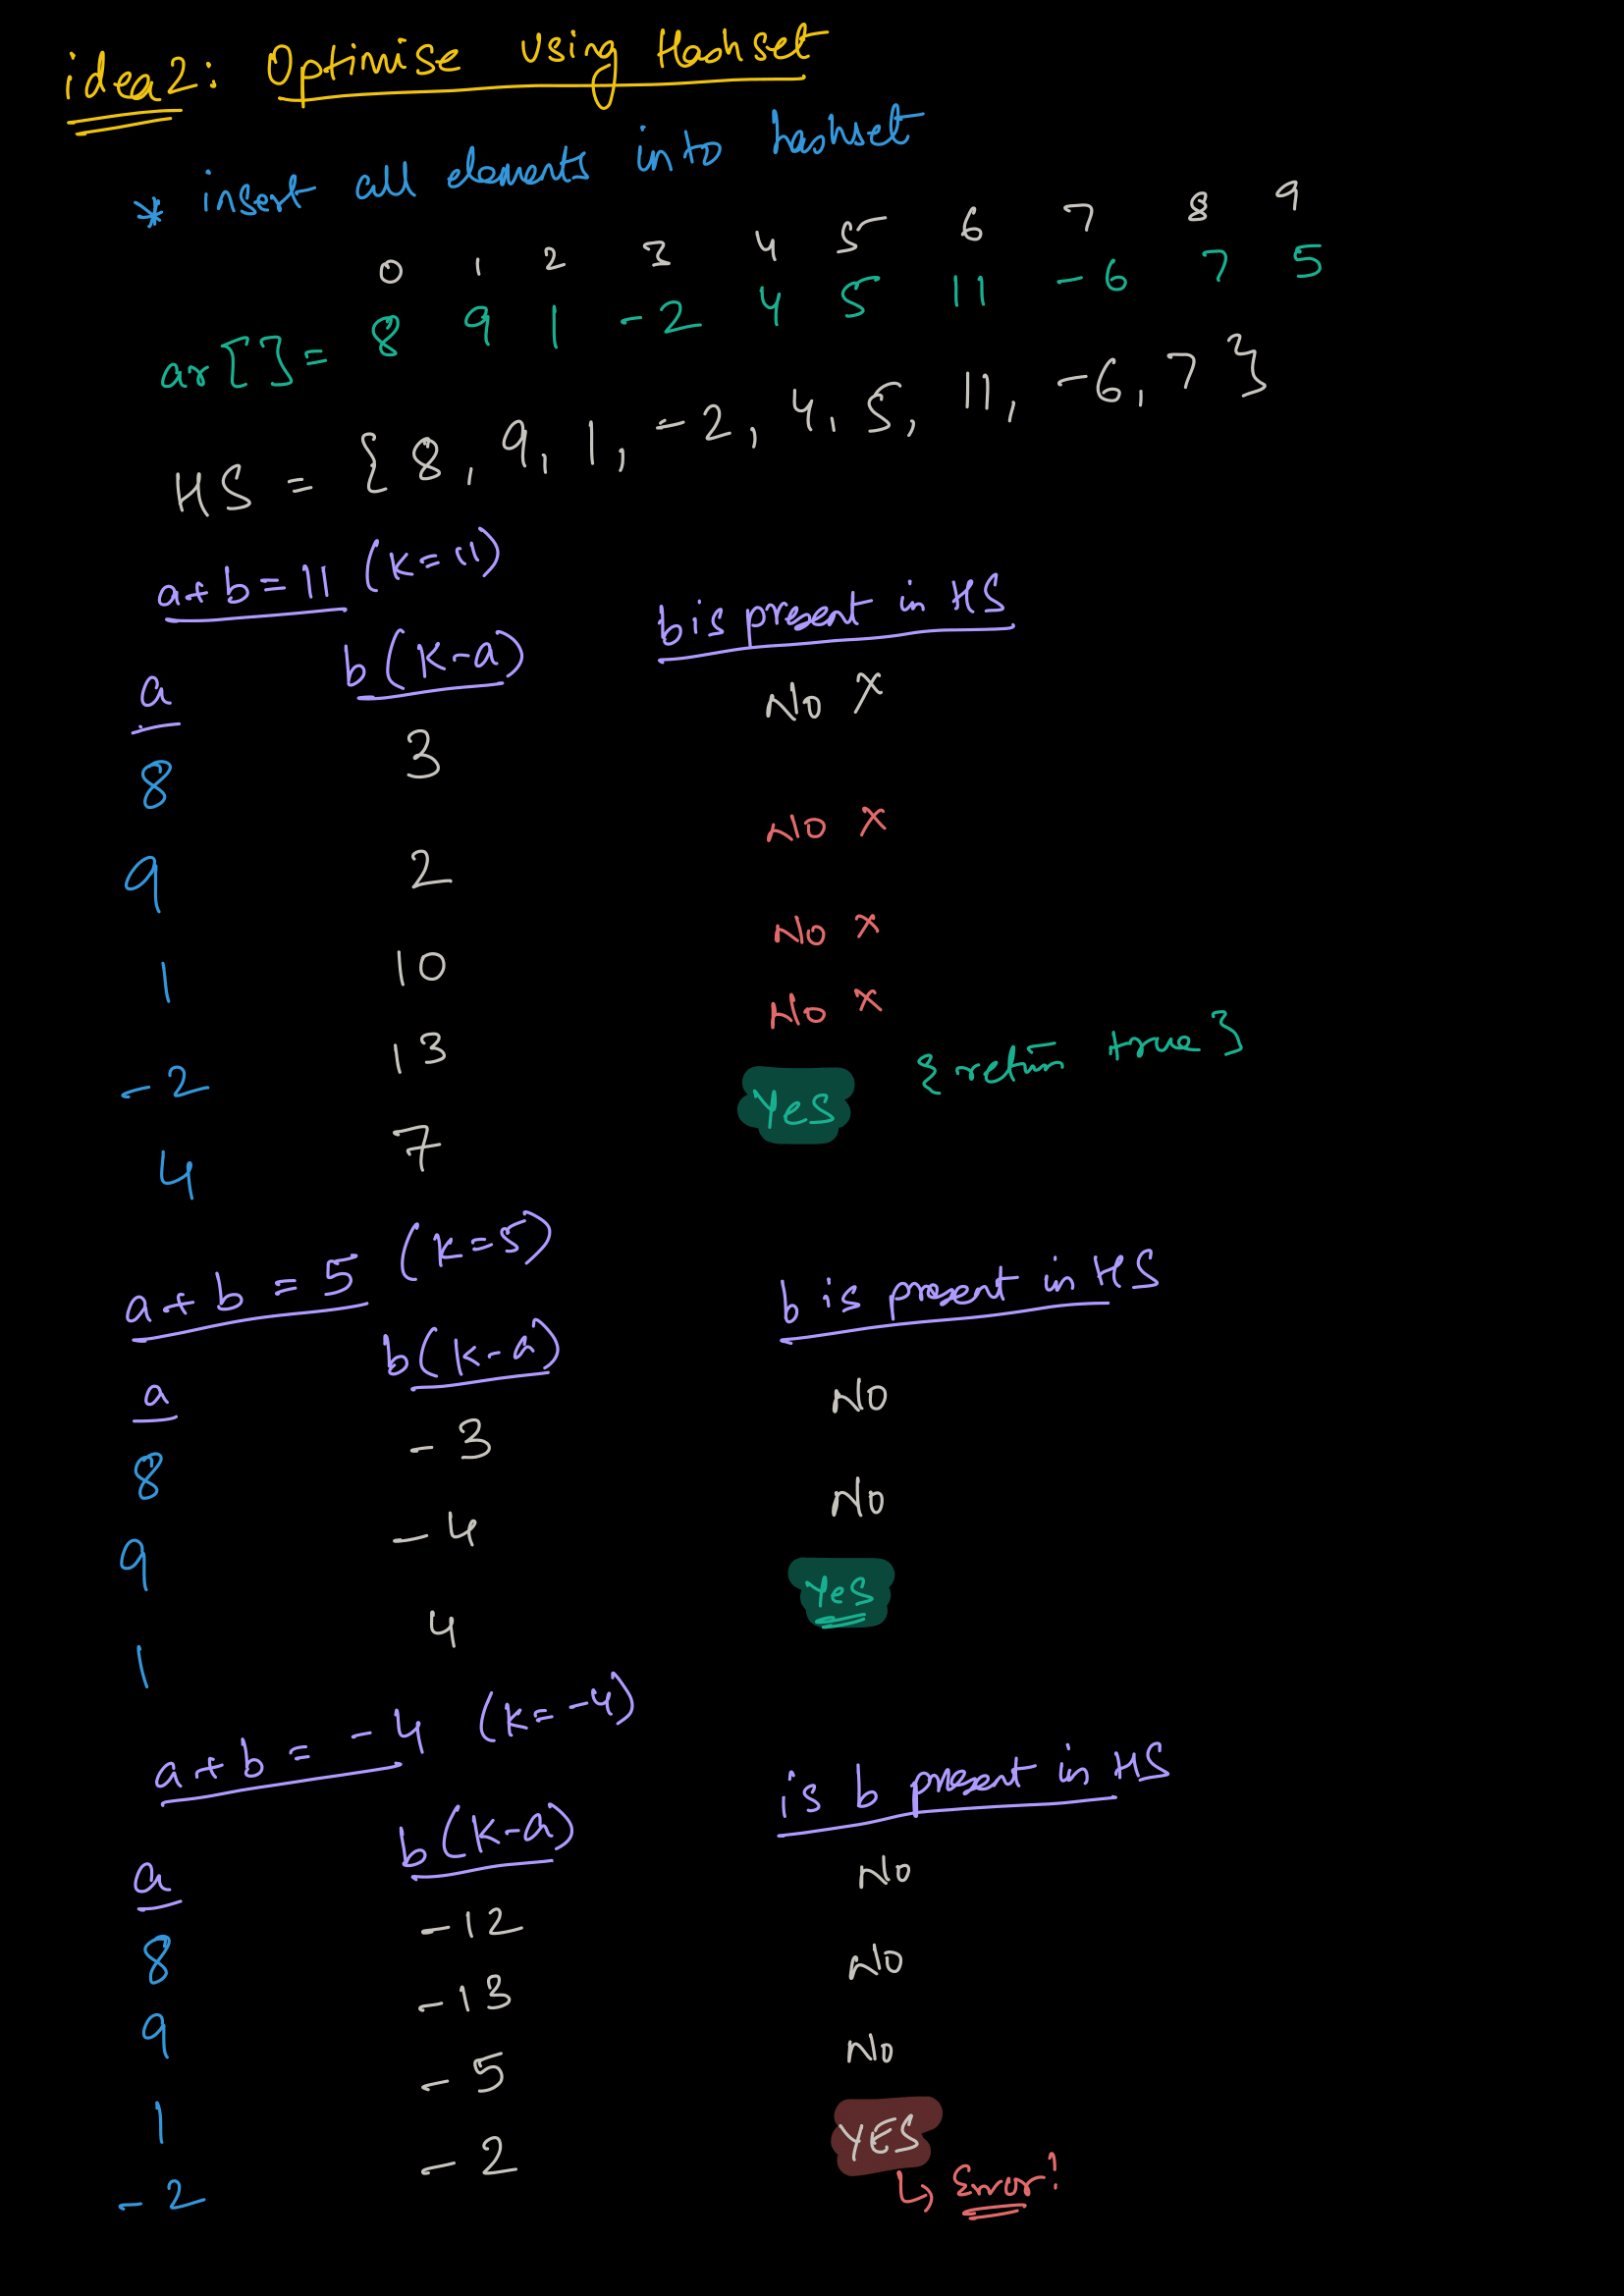 idea2: Optimise using Hashset
* insert all elements into hashset
0 1 2 3 4 5 6 7 8 9
ar[]= 8 9 1 -2 4 5 11 -6 7 5
HS = {8, 9, 1, -2, 4, 5, 11, -6, 7}
a+b=11 (K=11)
a b(K-a) b is present in HS
8 3 No x
9 2 No x
1 10 No x
-2 13 No x
4 7 Yes {return true}
a+b = 5 (K=5)
a b(K-a) b is present in HS
8 -3 NO
9 -4 NO
1 4 Yes
a+b = -4 (K=-4)
a b(K-a) is b present in HS
8 -12 No
9 -13 No
1 -5 No
-2 -2 YES
↳ Error!